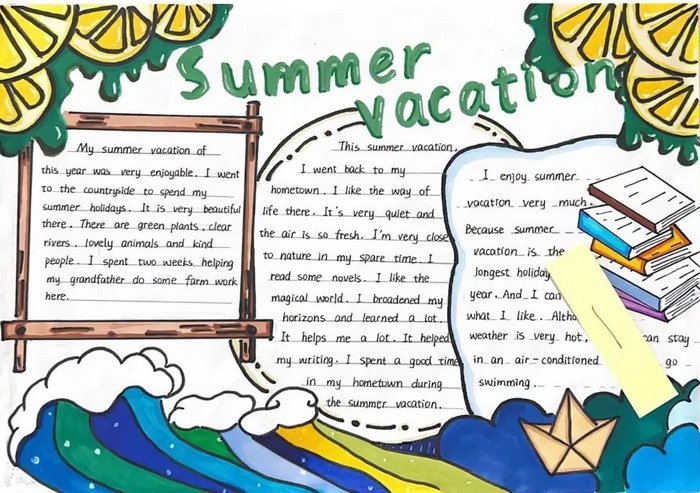 Summer
vacation
My summer vacation of
this year was very enjoyable. I went
to the countryside to spend my
summer holidays. It is very beautiful
there. There are green plants, clear
rivers, lovely animals and kind
people. I spent two weeks helping
my grandfather do some farm work
here.
This summer vacation,
I went back to my
hometown. I like the way of
life there. It's very quiet and
the air is so fresh. I'm very close
to nature in my spare time. I
read some novels. I like the
magical world. I broadened my
horizons and learned a lot.
It helps me a lot. It helped
my writing. I spent a good time
in my hometown during
the summer vacation.
I enjoy summer
vacation very much.
Because summer
vacation is the
longest holiday
year. And I can
what I like.
weather is very hot, can stay
in an air-conditioned go
swimming.